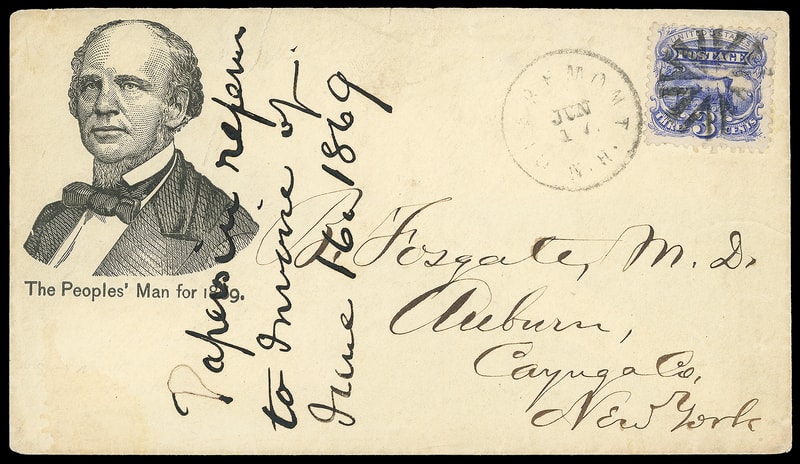 The Peoples' Man for 1869.
Papers in referen
to Invoice of
June 16th 1869
CLAREMONT. N.H.
JUN
17
UNITED STATES
POSTAGE
THREE 3 CENTS
B. Fosgate, M. D.
Auburn,
Cayuga Co,
New York